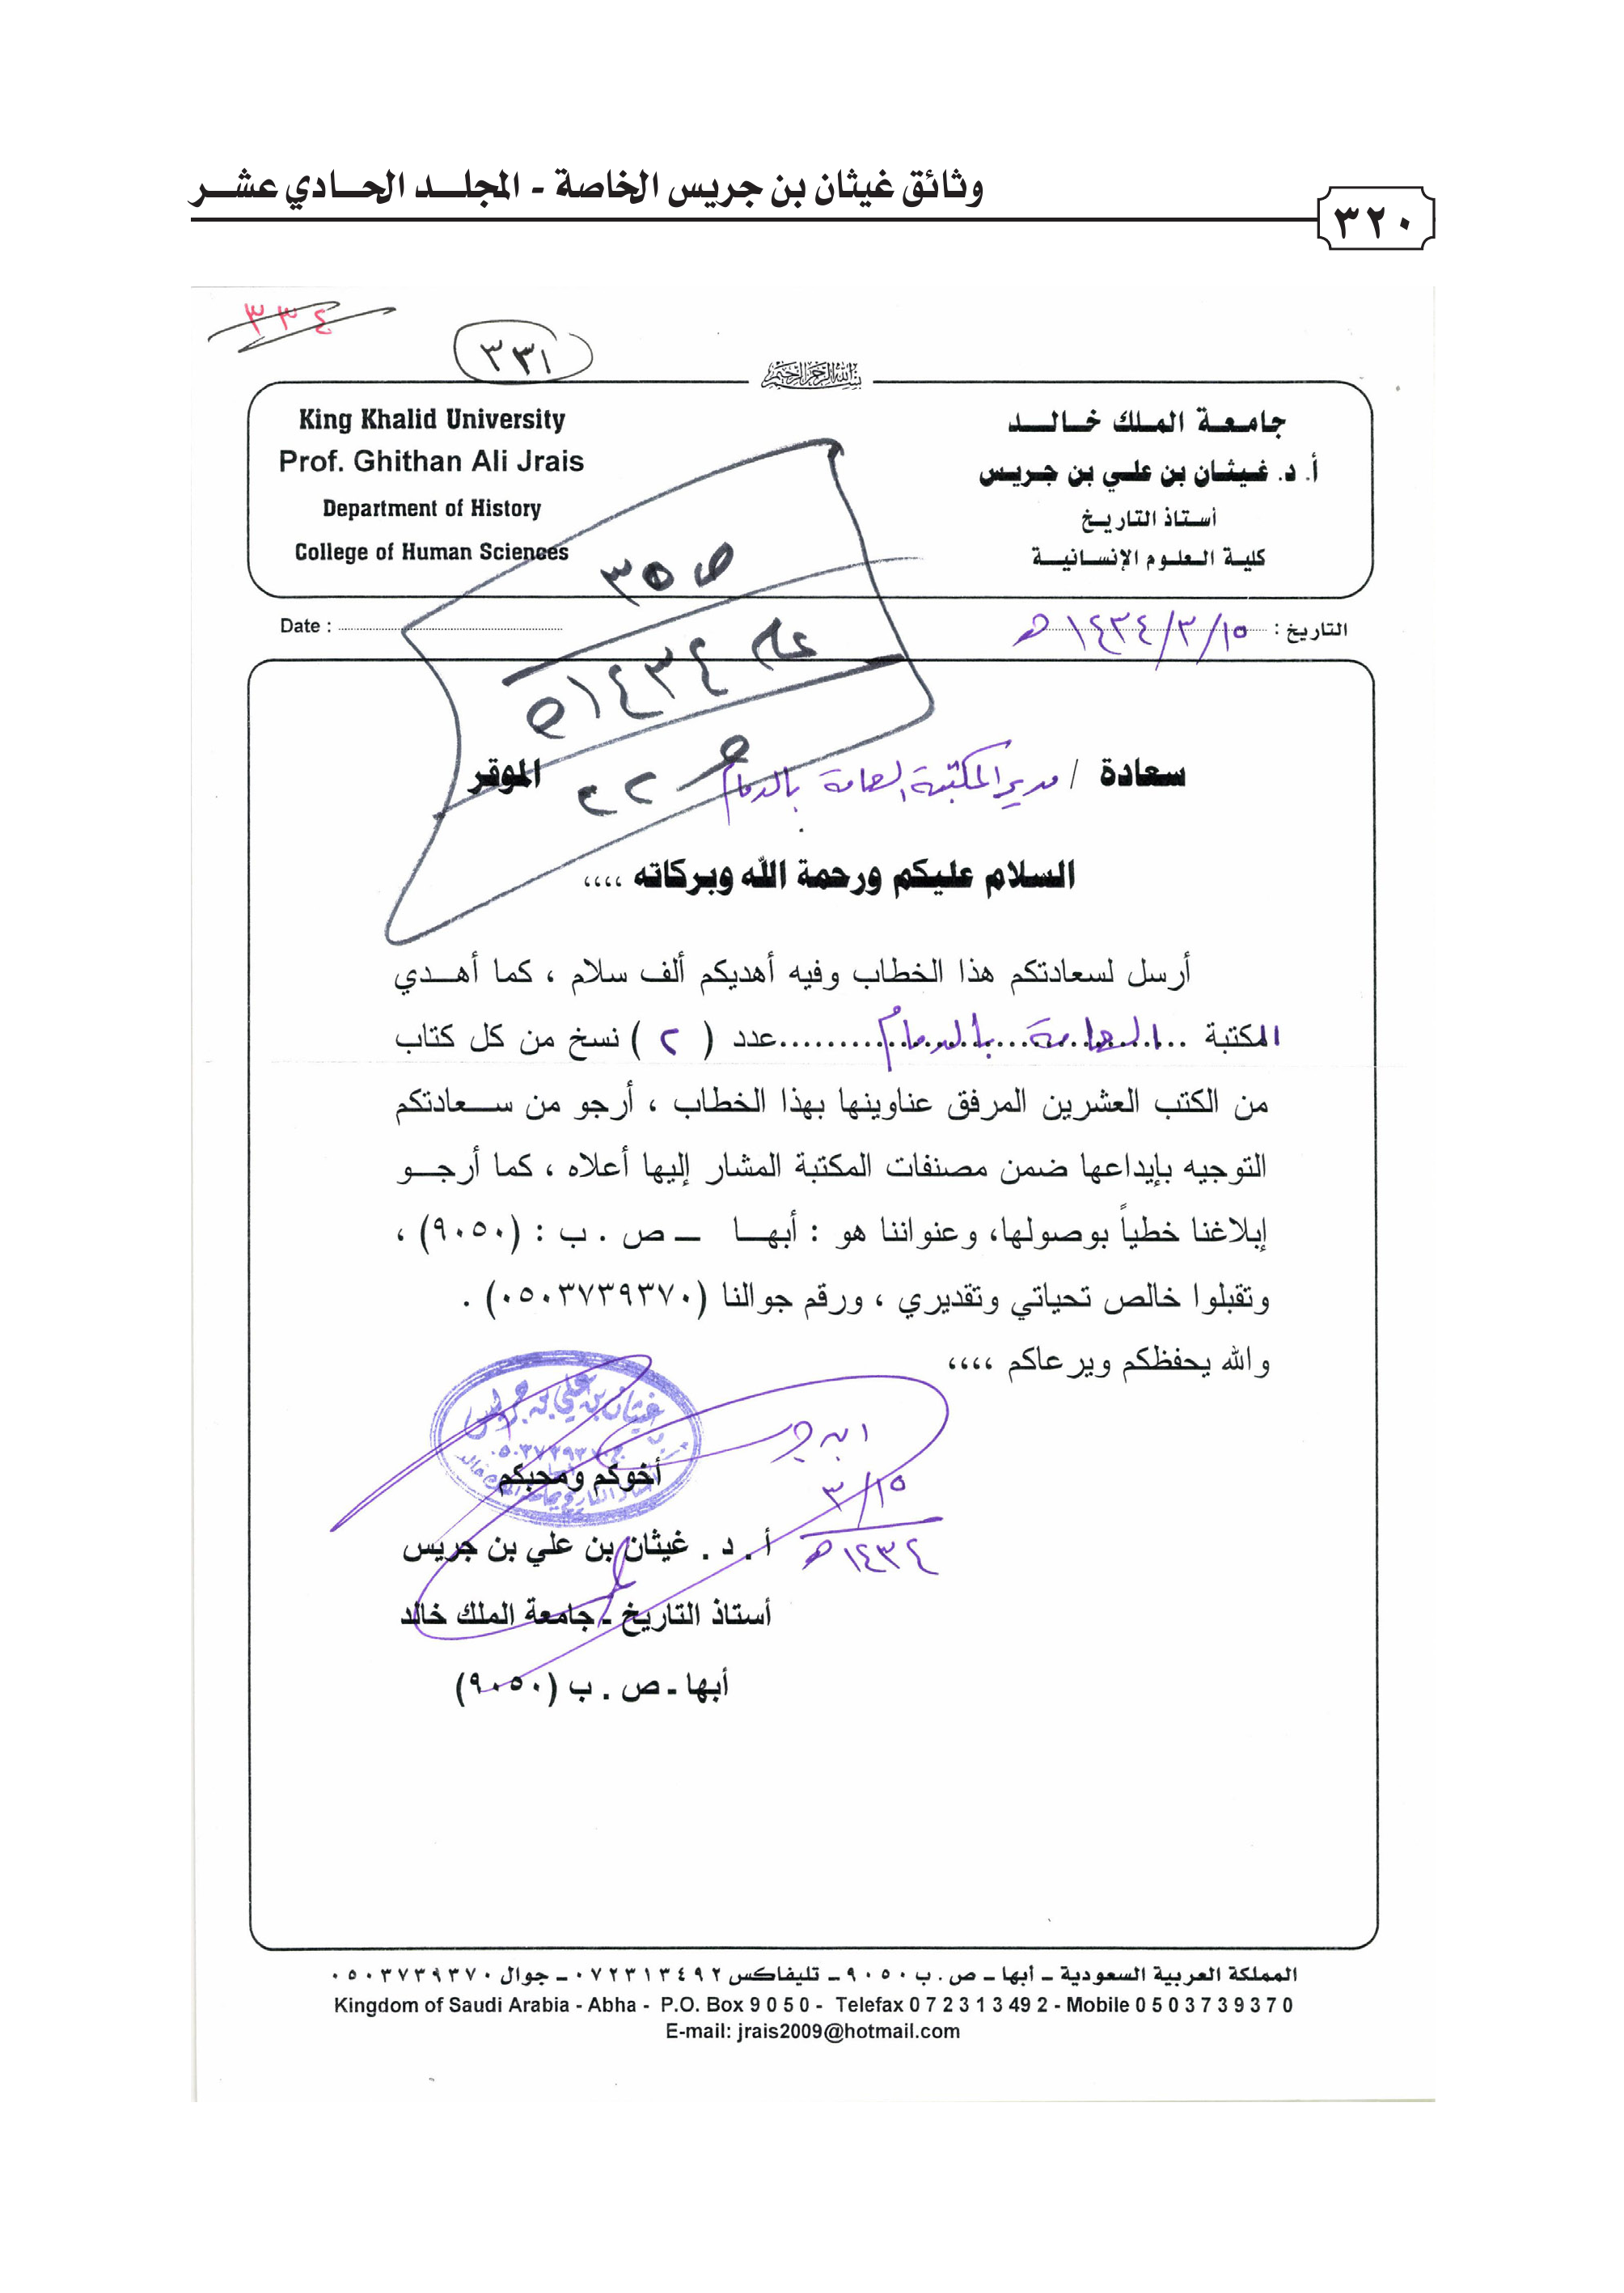 وثائق غيثان بن جريس الخاصة - المجلد الحادي عشر
٣٢٠
٣٣٤
٣٣١
بسم الله الرحمن الرحيم
جامعة الملك خالد
أ. د. غيثان بن علي بن جريس
أستاذ التاريخ
كلية العلوم الإنسانية
King Khalid University
Prof. Ghithan Ali Jrais
Department of History
College of Human Sciences
التاريخ : ١٤٣٤/٣/١٥ هـ
Date :
ص ٣٥
عام ١٤٣٤هـ
سعادة / مدير المكتبة العامة بالدمام الموقر
السلام عليكم ورحمة الله وبركاته ،،،،
أرسل لسعادتكم هذا الخطاب وفيه أهديكم ألف سلام ، كما أهدي
المكتبة العامة بالدمام عدد ( ٢ ) نسخ من كل كتاب
من الكتب العشرين المرفق عناوينها بهذا الخطاب ، أرجو من سعادتكم
التوجيه بإيداعها ضمن مصنفات المكتبة المشار إليها أعلاه ، كما أرجو
إبلاغنا خطياً بوصولها، وعنواننا هو : أبها ــ ص . ب : (٩٠٥٠) ،
وتقبلوا خالص تحياتي وتقديري ، ورقم جوالنا (٠٥٠٣٧٣٩٣٧٠) .
والله يحفظكم ويرعاكم ،،،،
غيثان بن علي بن جريس
أخوكم ومحبكم
ابن جريس
٣/١٥
١٤٣٤ هـ
أ . د . غيثان بن علي بن جريس
أستاذ التاريخ - جامعة الملك خالد
أبها - ص . ب (٩٠٥٠)
المملكة العربية السعودية ــ أبها ــ ص . ب ٩٠٥٠ ــ تليفاكس ٠٧٢٣١٣٤٩٢ ــ جوال ٠٥٠٣٧٣٩٣٧٠
Kingdom of Saudi Arabia - Abha - P.O. Box 9 0 5 0 - Telefax 0 7 2 3 1 3 49 2 - Mobile 0 5 0 3 7 3 9 3 7 0
E-mail: jrais2009@hotmail.com